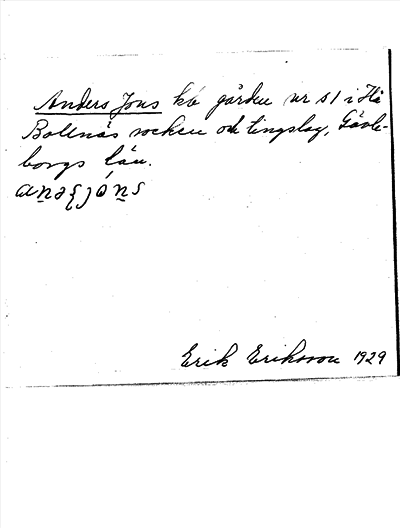 Anders Jons på gården nr 51 i Hå
Bollnäs socken och tingslag, Gävle-
borgs län.
Erik Eriksson 1929